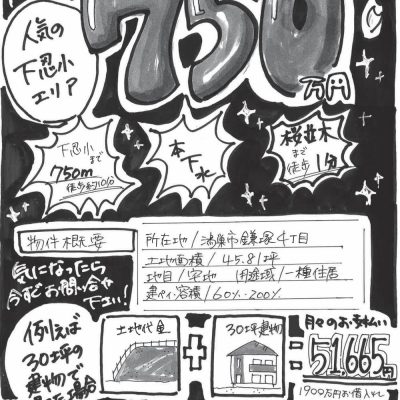 人気の
下忍小
エリア
750
万円
下忍小まで
750m
徒歩約10分
本下水
桜並木
まで
徒歩1分
物件概要
所在地/鴻巣市鎌塚4丁目
土地面積/45.81坪
地目/宅地 用途域/一種住居
建ぺい容積/60%・200%
気になったら
今すぐお問い合せ
下さい!
例えば
30坪の
建物で
場合
土地代金
+
30坪建物
=
月々のお支払い
51,665円
1900万円お借入れ